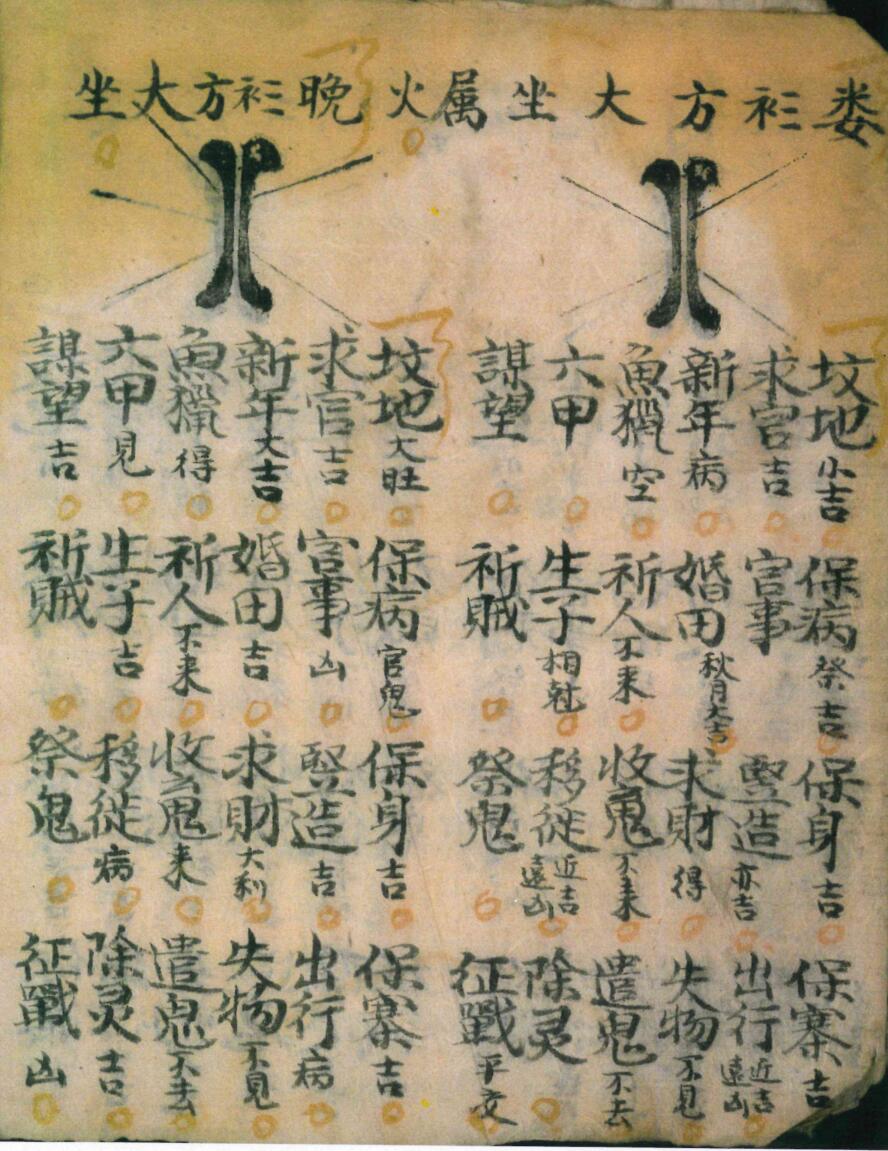 娄衫方大坐属火晚衫方大坐
坟地小吉 保病祭吉 保身吉 保寨吉
求官吉 官事 竪造亦吉 出行近吉遠凶
新年病 婚田秋月大吉 求財得 失物不見
魚獵空 祈人不来 收魂不来 遣鬼不去
六甲 生子相尅 移徙近吉遠凶 除灵
謀望 祈賊 祭鬼 征戰平交
坟地大旺 保病官鬼 保身吉 保寨吉
求官吉 官事凶 竪造吉 出行病
新年大吉 婚田吉 求財大利 失物不見
魚獵得 祈人不来 收魂来 遣鬼不去
六甲見 生子吉 移徙病 除灵吉
謀望吉 祈賊 祭鬼 征戰凶